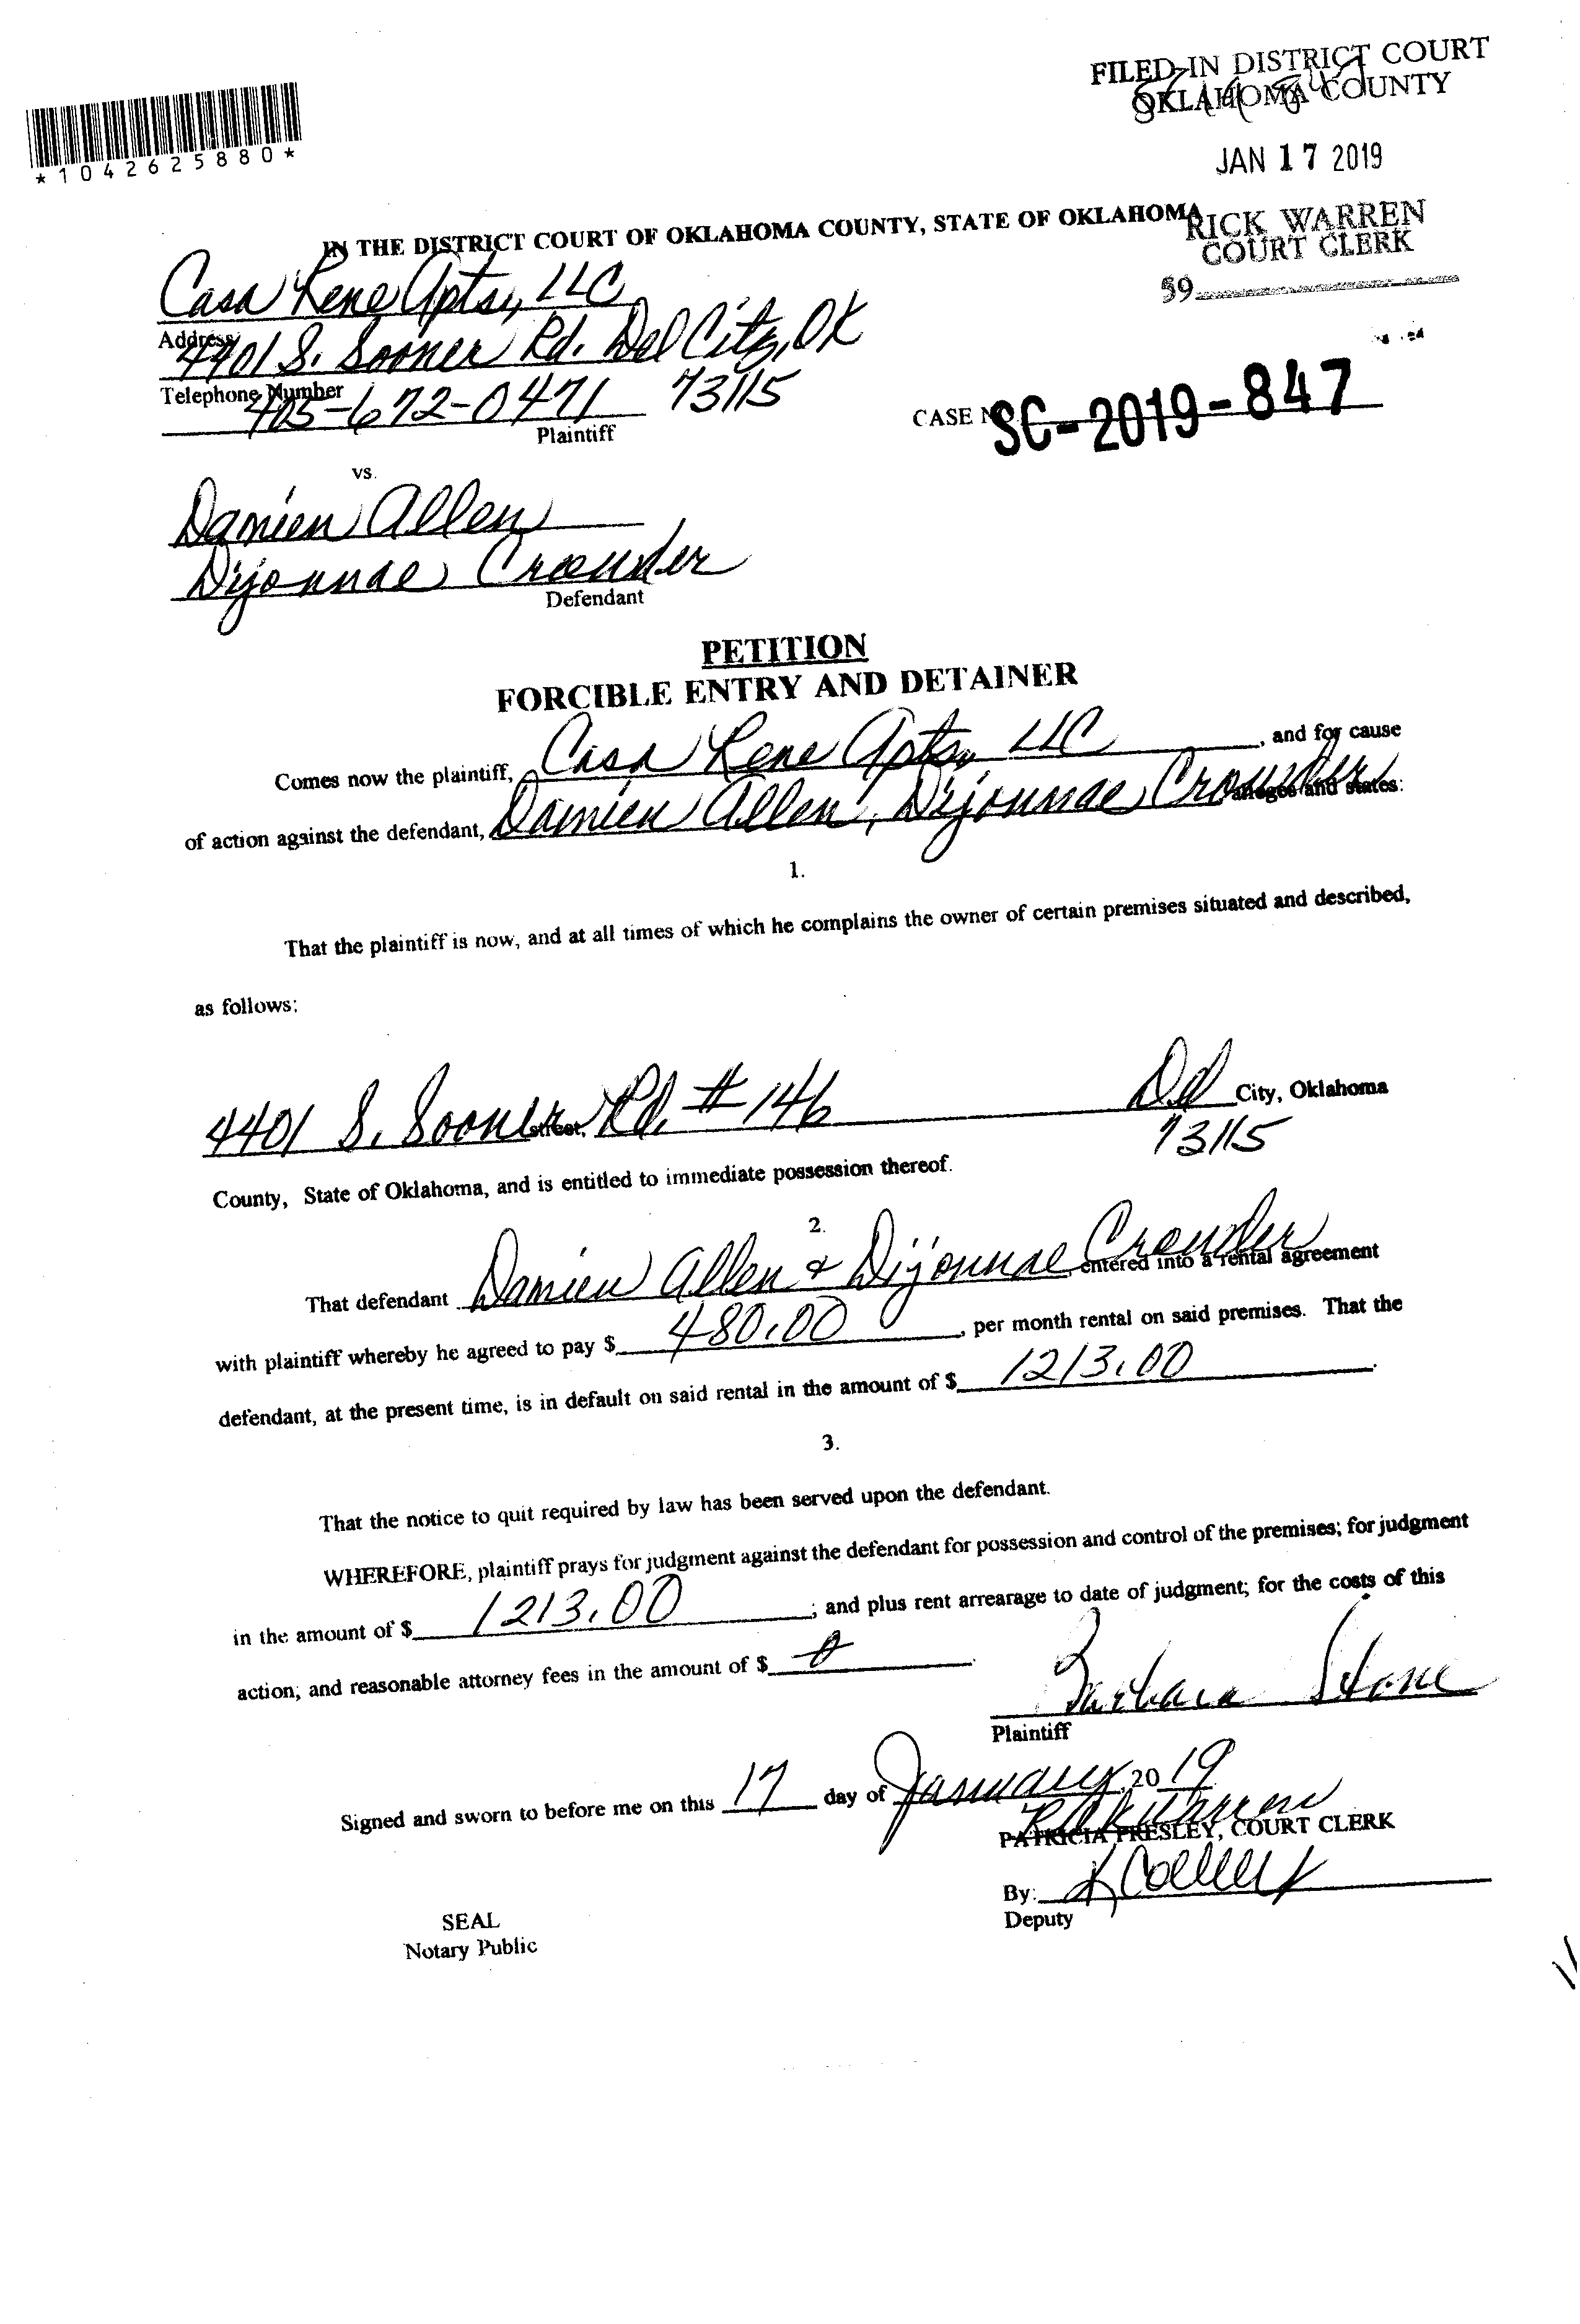 FILED IN DISTRICT COURT
OKLAHOMA COUNTY
JAN 17 2019
RICK WARREN
COURT CLERK
59
*1042625880*
IN THE DISTRICT COURT OF OKLAHOMA COUNTY, STATE OF OKLAHOMA
Casa Rene Apts., LLC
Address
4401 S. Sooner Rd. Del City, OK
Telephone Number
405-672-0471 73115
Plaintiff
CASE NO. SC-2019-847
vs.
Damien Allen
Dijonnae Crowder
Defendant
PETITION
FORCIBLE ENTRY AND DETAINER
Comes now the plaintiff, Casa Rene Apts., LLC, and for cause
of action against the defendant, Damien Allen, Dijonnae Crowder alleges and states:
1.
That the plaintiff is now, and at all times of which he complains the owner of certain premises situated and described,
as follows:
4401 S. Sooner Rd. #146 Del City, Oklahoma
street,
73115
County, State of Oklahoma, and is entitled to immediate possession thereof.
2.
That defendant Damien Allen & Dijonnae Crowder entered into a rental agreement
with plaintiff whereby he agreed to pay $ 480.00, per month rental on said premises. That the
defendant, at the present time, is in default on said rental in the amount of $ 1213.00.
3.
That the notice to quit required by law has been served upon the defendant.
WHEREFORE, plaintiff prays for judgment against the defendant for possession and control of the premises; for judgment
in the amount of $ 1213.00; and plus rent arrearage to date of judgment; for the costs of this
action; and reasonable attorney fees in the amount of $ 0.
Barbara Stone
Plaintiff
Signed and sworn to before me on this 17 day of January, 2019
Rick Warren
PATRICIA PRESLEY, COURT CLERK
By:
Deputy
SEAL
Notary Public